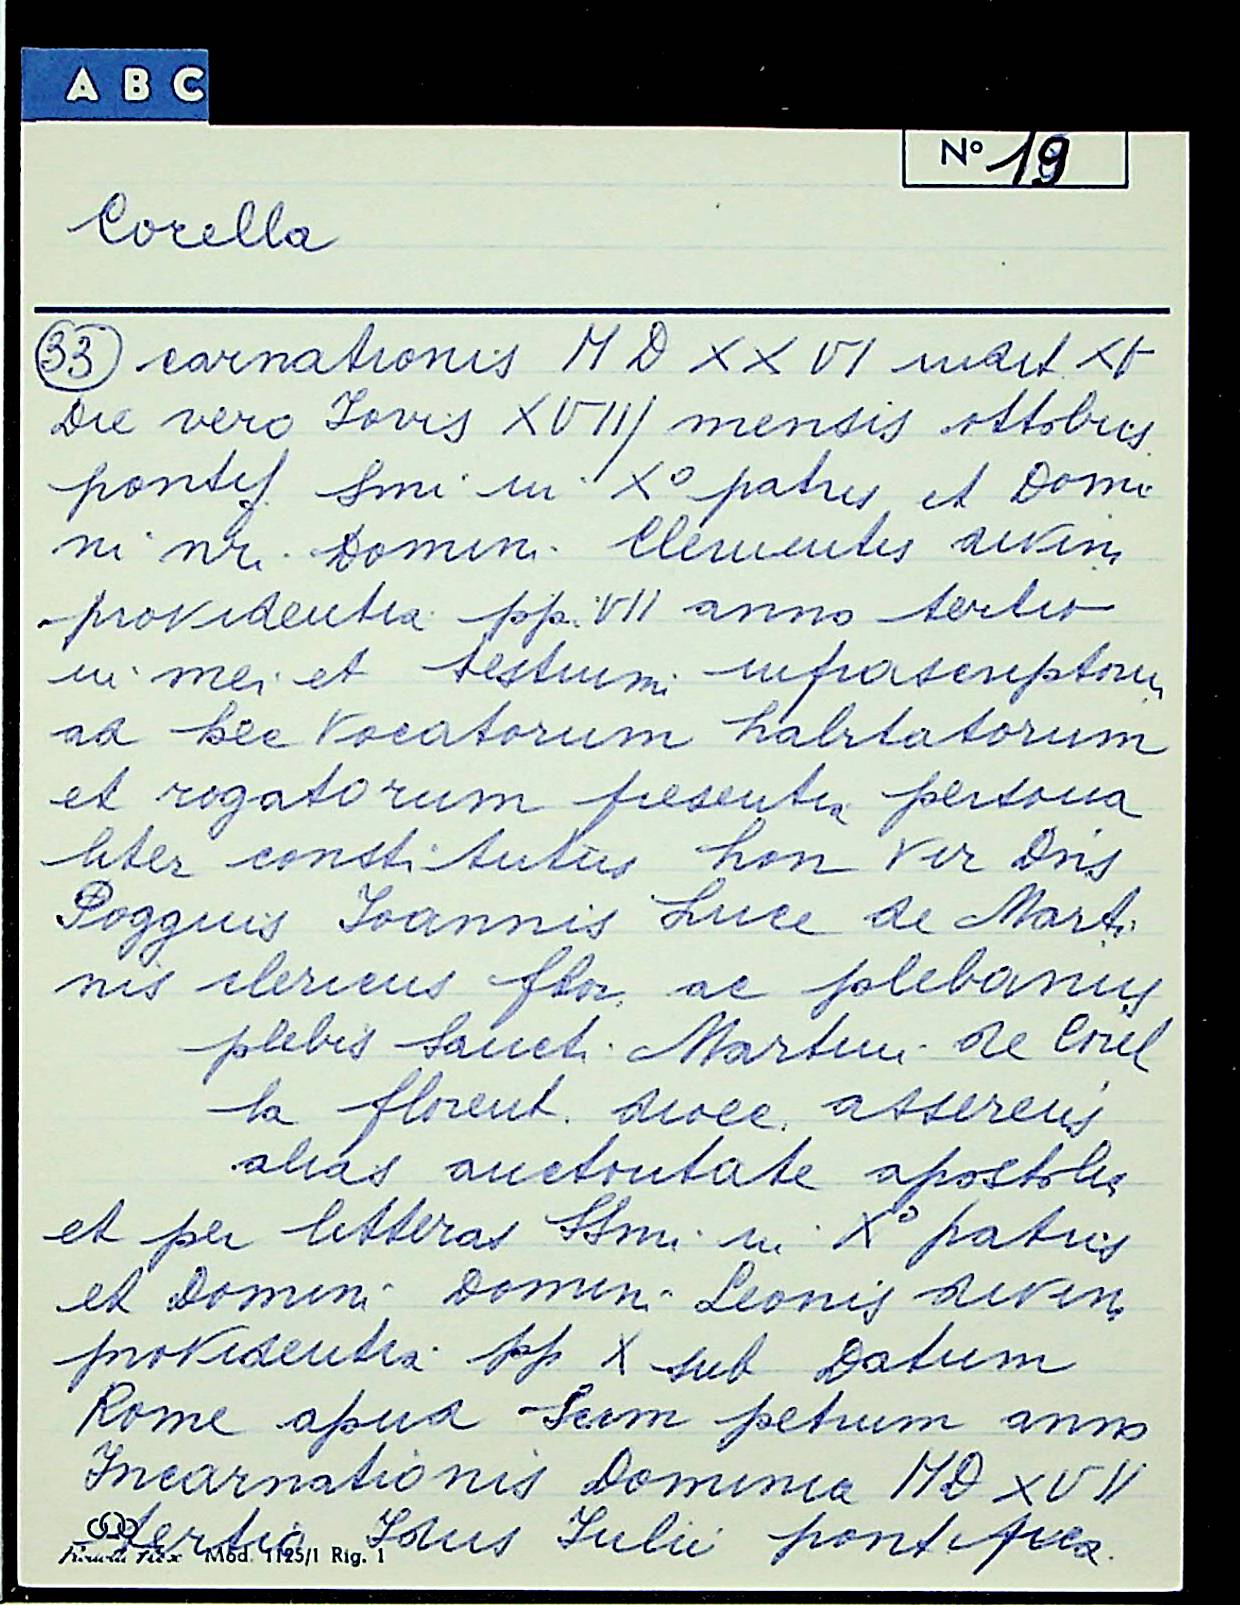 A B C
N° 19
Corella
33 carnationis M D XX VI indit. XV
Die vero Jovis XVIIJ mensis ottobris
pontif. Smi in Xº patris et Domi
ni nri. Domini Clementis divin.
providentia pp. VII anno tertio
in mei et testium infrascriptoru
ad hec vocatorum habitatorum
et rogatorum presentia persona
liter constitutus hon vir Dñs
Pogguis Joannis Luce de Marti
nis clericus flor. ac plebanus
plebis Sancti Martini de Corel
la florent. dioce. asserens
alias auctoritate apostolic
et per litteras SSmi in Xº patris
et Domini Domini Leonis divin
providentia pp X sub Datum
Rome apud Scum petrum anno
Incarnationis Dominica MD XVII
tertio Idus Julii pontifica.
Mod. 1125/1 Rig. 1